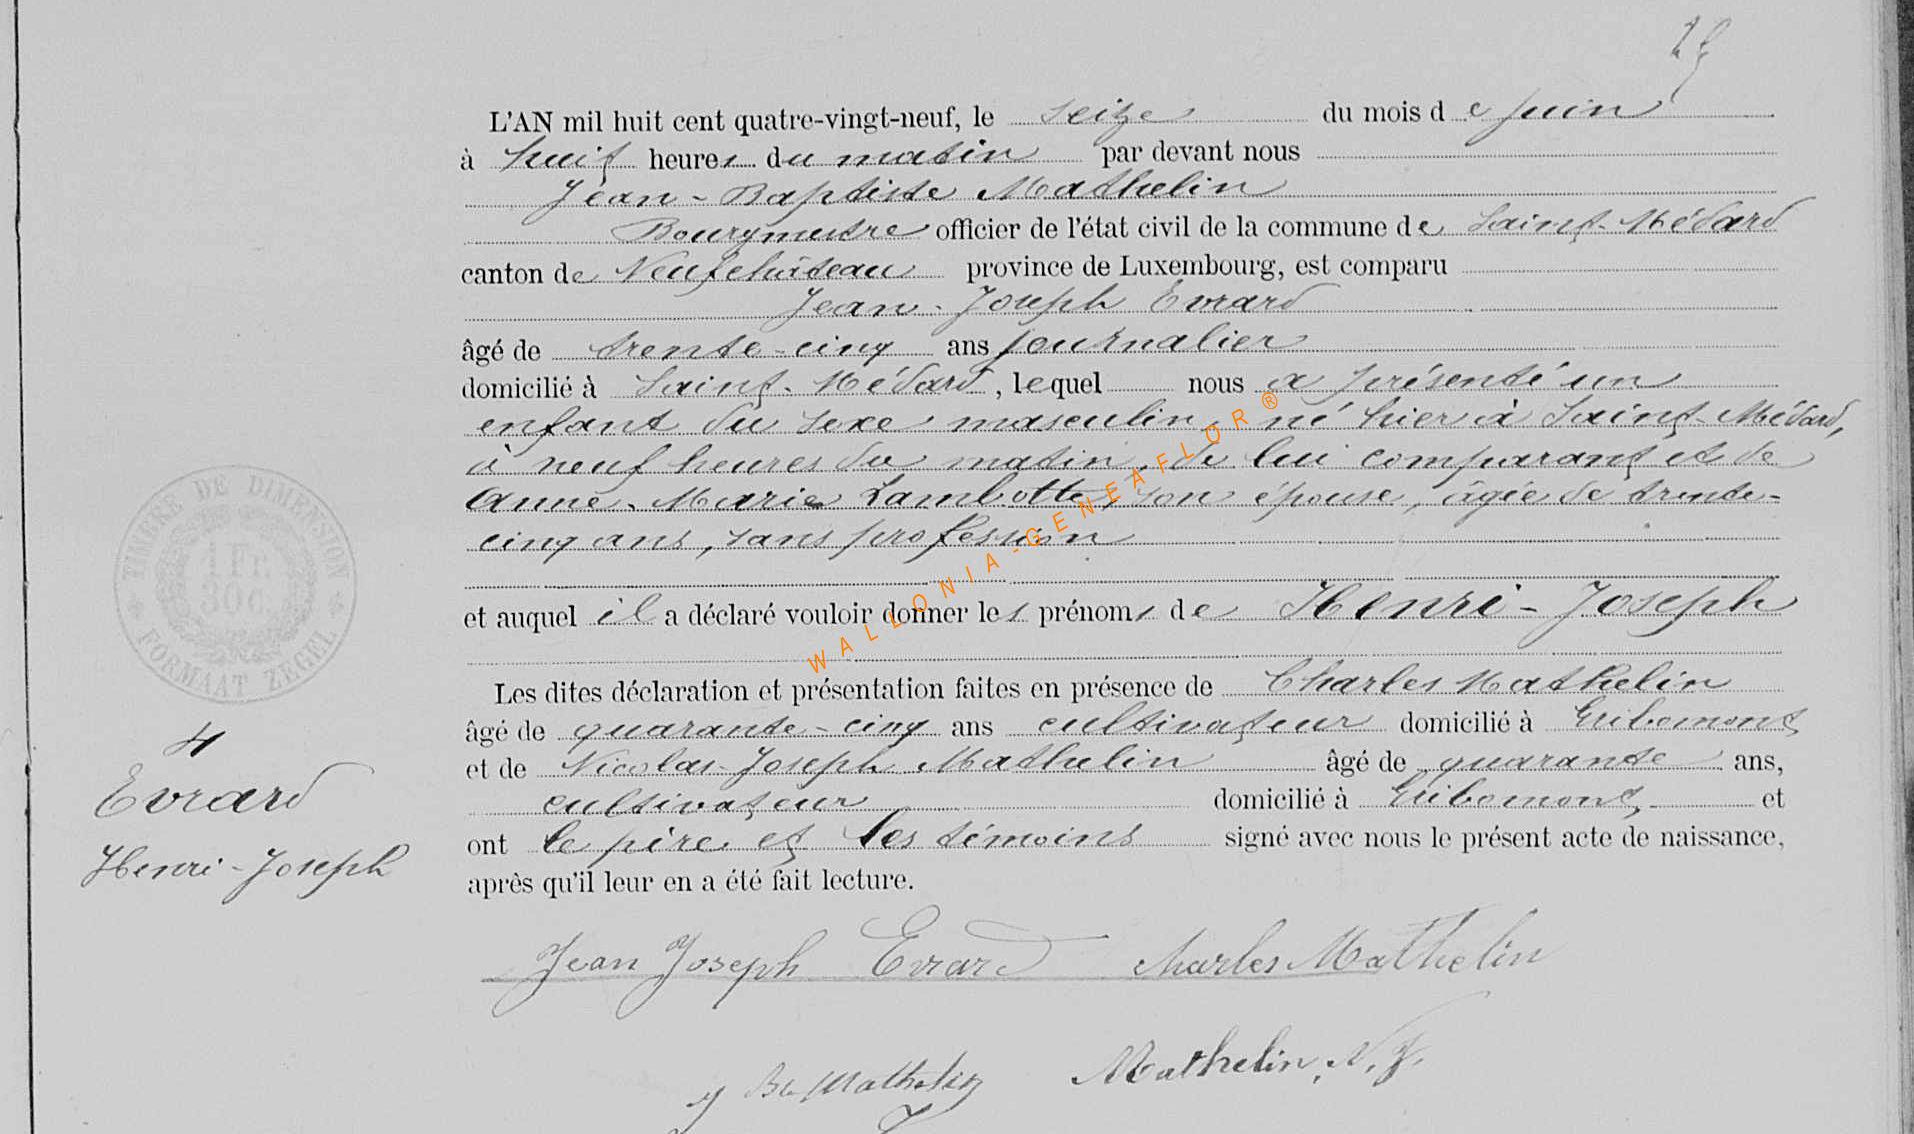 25
L'AN mil huit cent quatre-vingt-neuf, le seize du mois de juin
à huit heures du matin par devant nous
Jean-Baptiste Mathelin
Bourgmestre officier de l'état civil de la commune de Saint-Médard
canton de Neufchâteau province de Luxembourg, est comparu
Jean-Joseph Evrard
âgé de trente-cinq ans journalier
domicilié à Saint-Médard, lequel nous a présenté un
enfant du sexe masculin, né hier à Saint-Médard,
à neuf heures du matin, de lui comparant et de
Anne-Marie Lambotte, son épouse, âgée de trente-
cinq ans, sans profession
et auquel il a déclaré vouloir donner les prénoms de Henri-Joseph
Les dites déclaration et présentation faites en présence de Charles Mathelin
âgé de quarante-cinq ans cultivateur domicilié à Gribomont
et de Nicolas-Joseph Mathelin âgé de quarante ans,
cultivateur domicilié à Gribomont, et
ont le père et les témoins signé avec nous le présent acte de naissance,
après qu'il leur en a été fait lecture.
Jean Joseph Evrard Charles Mathelin
J Bte Mathelin Mathelin, N. J.
TIMBRE DE DIMENSION
1 Fr.
30 c.
FORMAAT ZEGEL
4
Evrard
Henri-Joseph
WALLONIA-GENEAFLOR®